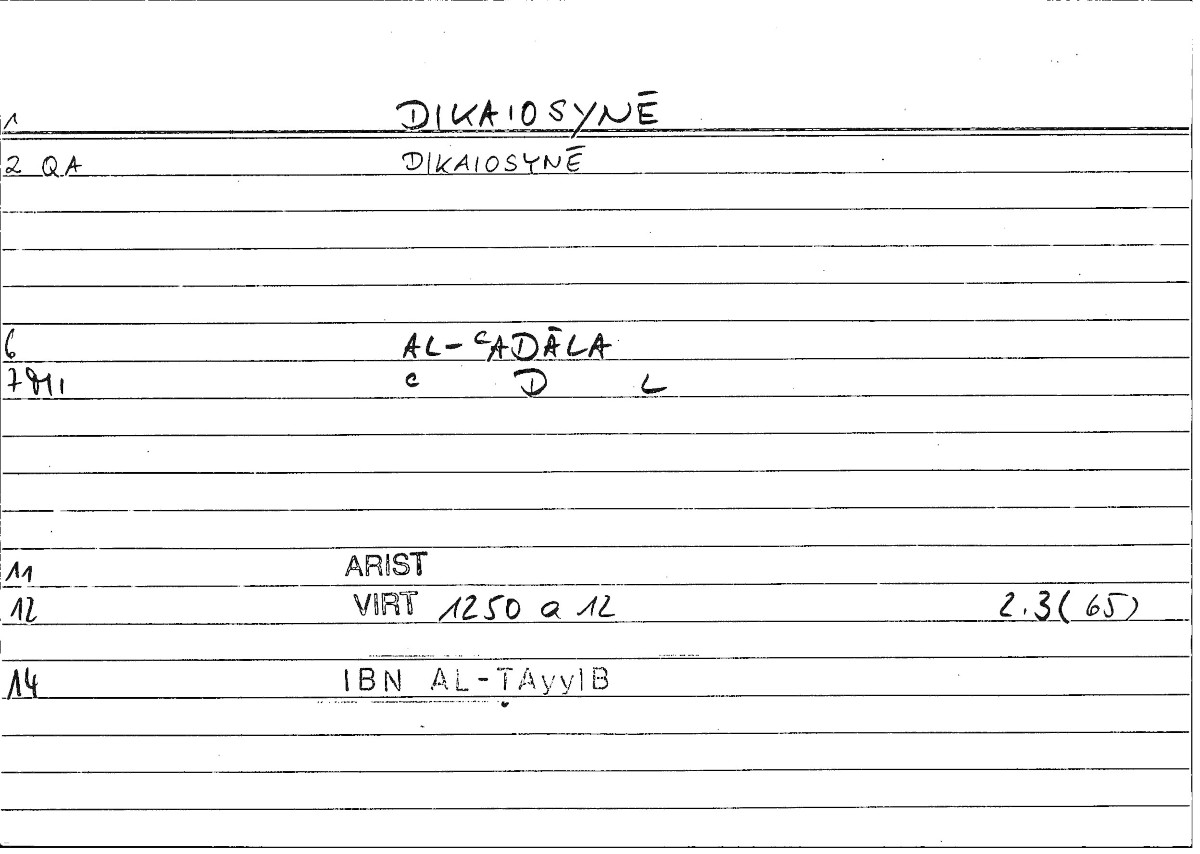 1 DIKAIOSYNĒ
2 QA DIKAIOSYNĒ
6 AL-ᶜADĀLA
7 M1 ᶜ D L
11 ARIST
12 VIRT 1250 a 12 2.3(65)
14 IBN AL-ṬAyyIB